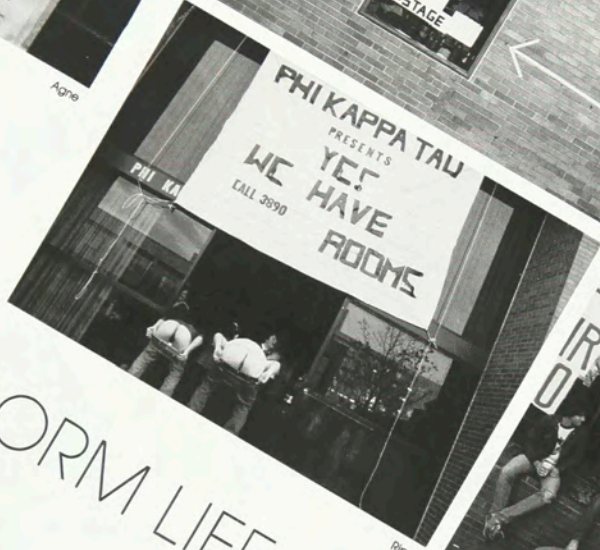 STAGE
Agne
PHI KAPPA TAU
PRESENTS
YES
WE HAVE
CALL 3890
ROOMS
PHI KA
IR
O
ORM LIFE